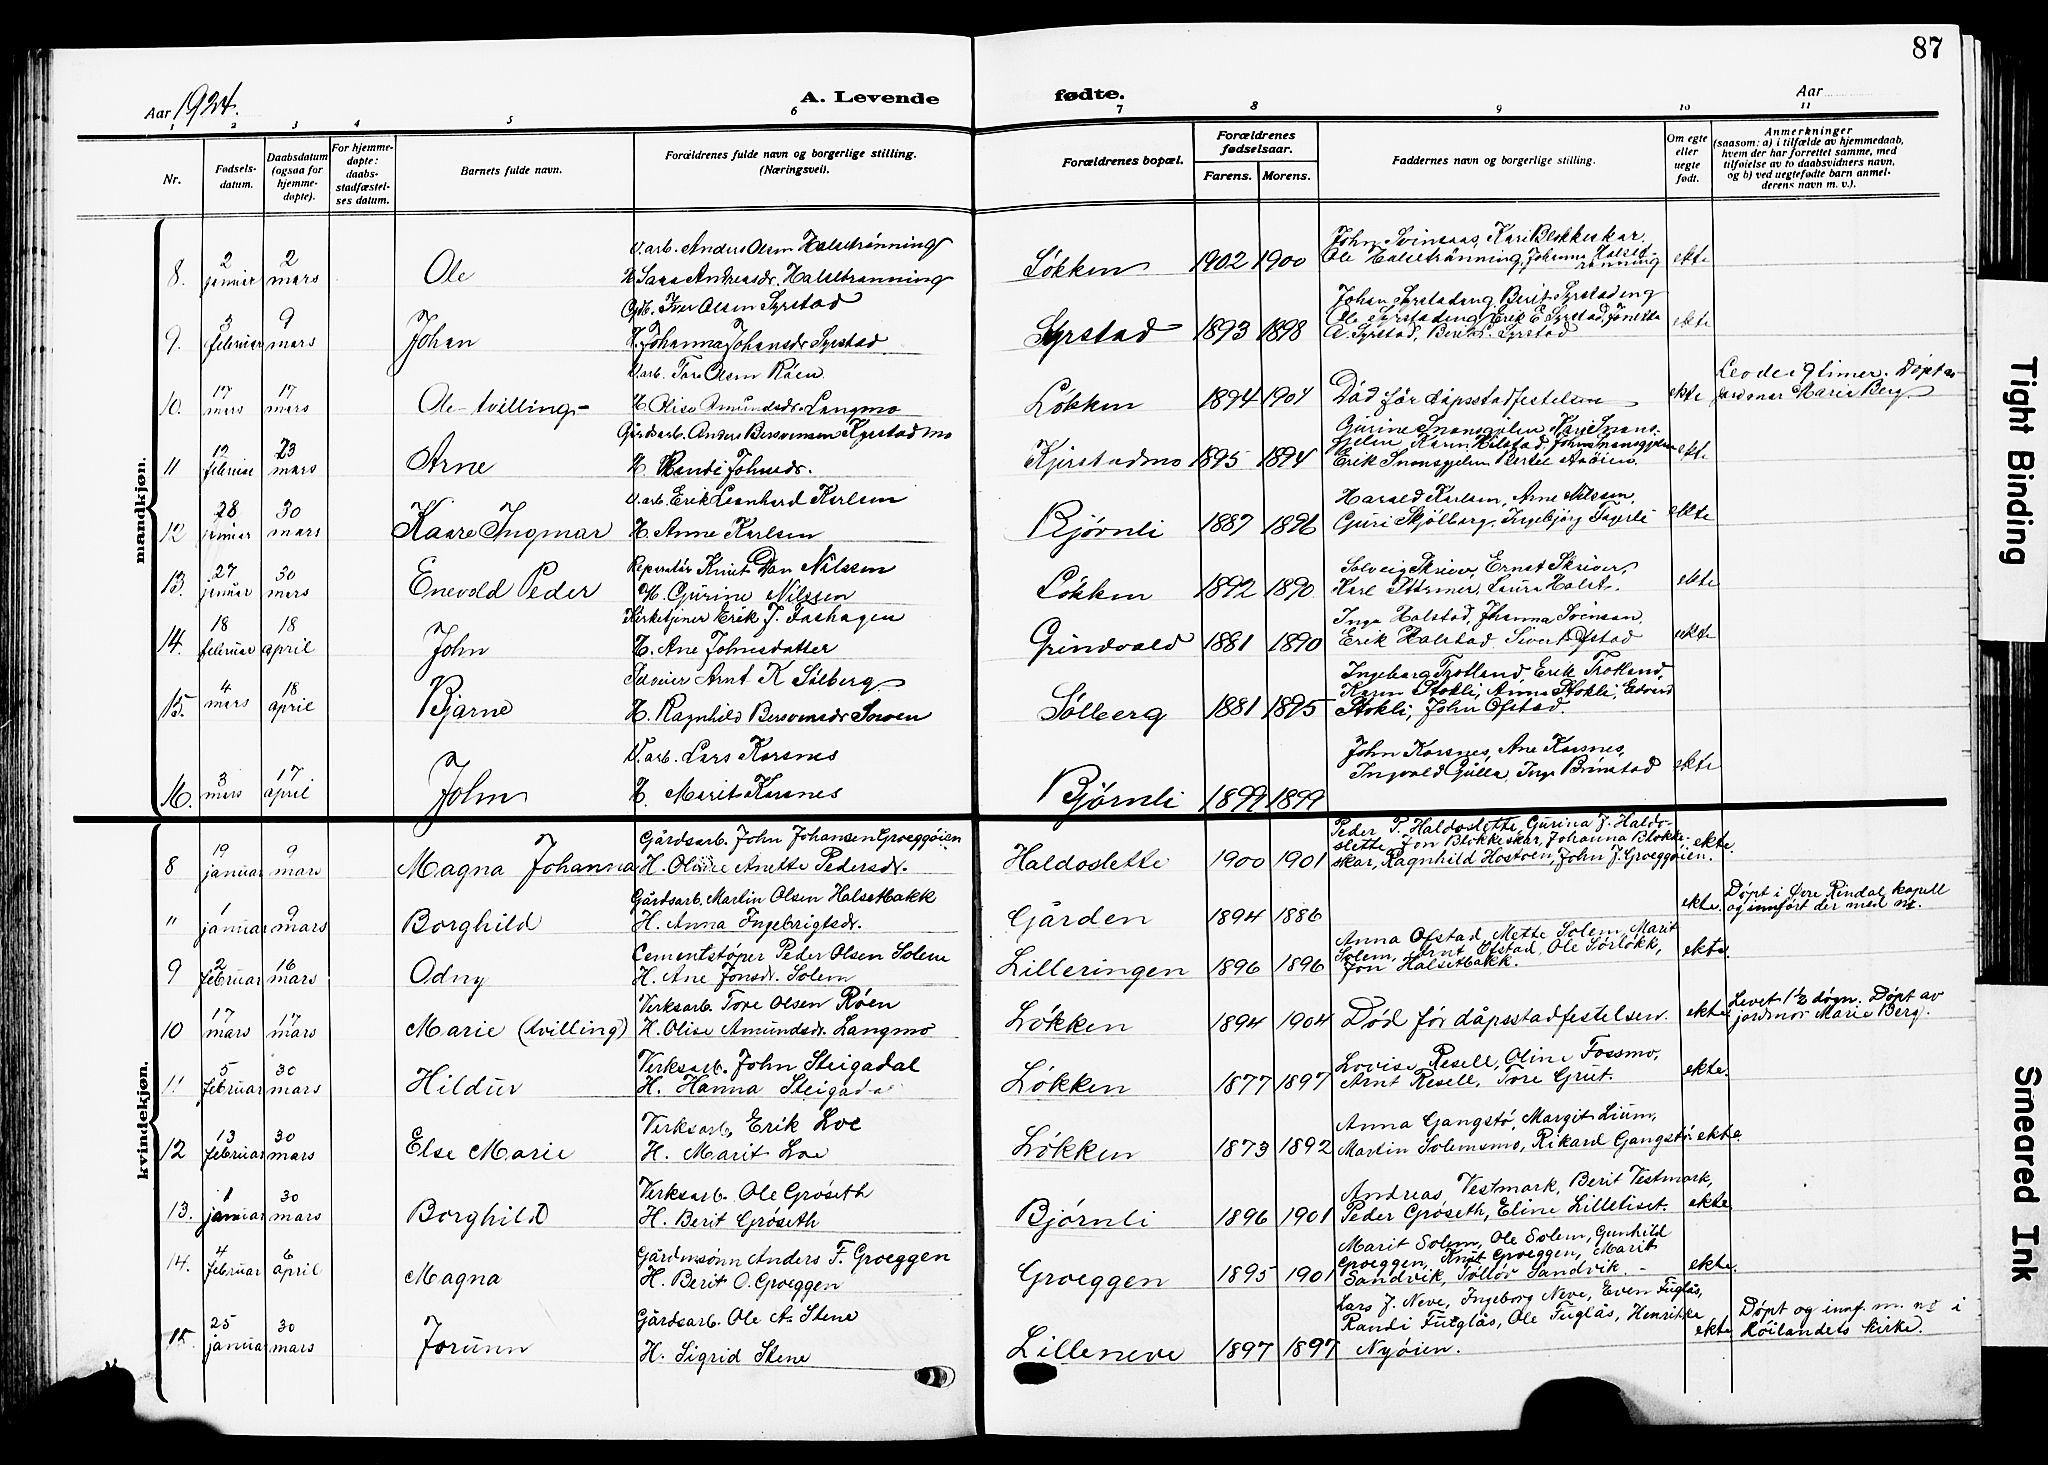 87
Aar 1924.
A. Levende fødte.
Aar
1 2 3 4 5 6 7 8 9 10 11
Nr.
Fødsels-
datum.
Daabsdatum
(ogsaa for
hjemme-
døpte).
For hjemme-
døpte:
daabs-
stadfæstel-
ses datum.
Barnets fulde navn.
Forældrenes fulde navn og borgerlige stilling.
(Næringsvei).
Forældrenes bopæl.
Forældrenes
fødselsaar.
Farens. Morens.
Faddernes navn og borgerlige stilling.
Om egte
eller
uegte
født.
Anmerkninger
(saasom: a) i tilfælde av hjemmedaab,
hvem der har forrettet samme, med
tilføielse av to daabsvidners navn,
og b) ved uegtefødte barn anmel-
derens navn m. v.).
mandkjøn.
8. 2 januar 2 mars Ole
V.arb. Anders Olsen Halsetrønning
H. Sara Andreasdr. Halsetrønning
Løkken 1902 1900
John Svinsaas, Kari Blokkeskar,
Ole Halsetrønning, Johanna Halset-
rønning
ekte
9. 3 februar 9 mars Johan
Gbr. Iver Olsen Syrstad
H. Johanna Johansdr. Syrstad
Syrstad 1893 1898
Johan Syrstadeng, Berit Syrstadeng
Ole Syrstadeng, Erik E. Syrstad,
A. Syrstad, Syrstad
ekte
10. 17 mars 17 mars Ole tvilling
V.arb. Tore Olsen Røen
H. Olise Amundsdr. Langmo
Løkken 1894 1904
Død før dåpsstadfestelsen
ekte
Levde 9 timer. Døpt av
jordmor Marie Berg.
11 12 februar 23 mars Arne
Gårdsarb. Anders Bersvensen Kyrstadmo
H. Randi Johnsdr.
Kjirstadmo 1895 1894
ekte
12 28 januar 30 mars Kaare Ingmar
V.arb. Erik Leonhard Karlsen
H. Anne Karlsen
Bjørnli 1887 1896
Harald Karlsen, Arne Nilssen,
Guri Skjølberg, Ingebjørg Fagerli
ekte
13. 27 januar 30 mars Enevold Peder
Reparatør Knut Dan Nilssen
H. Gurine Nilssen
Løkken 1892 1890
Solveig Skriver, Ernst Skriver,
Karl Størmer, Laura Halset.
ekte
14. 18 februar 18 april John
Kirketjener Erik J. Fashagen
H. Ane Johnsdatter
Grindvold 1881 1890
Inga Halstad, Johanna Svinsaa,
Erik Halstad, Sivert Ofstad
ekte
15. 4 mars 18 april Bjarne
Selveier Arnt K Solberg
H. Ragnhild Bersvensdr
Solberg 1881 1895
Ingeborg Trotland, Erik Trotland,
Karen Stokli, Anna Stokli, Edvard
Stokli, John Ofstad.
16. 3 mars 17 april John
V.arb. Lars Korsnes
H. Marit Korsnes
Bjørnli 1899 1899
John Korsnes, Ane Korsnes,
Ingvald Gulla, Inga Brinstad
ekte
kvindekjøn.
8 19 januar 9 mars Magna Johanna
Gårdsarb. John Johansen Groeggøien
H. Oline Anette Pedersdr.
Haldoslette 1900 1901
Peder P. Haldoslette, Gurina J. Haldo-
slette, Jon Blokkeskar, Johanna Blokke-
skar, Ragnhild Hostoen, John J. Groeggøien.
ekte.
" 1 januar 9 mars Borghild
Gårdsarb. Martin Olsen Halsetbakk
H. Anna Ingebrigtsdr.
Gården 1894 1886
ekte.
Døpt i Øvre Rindal kapell
og innført der med nr.
9 2 februar 16 mars Odny
Cementstøper Peder Olsen Solem
H. Ane Jonsdr. Solem
Lilleringen 1896 1896
Anna Ofstad, Mette Solem, Marit
Solem, Arnt Ofstad, Ole Sørløkk,
Jon Halsetbakk.
ekte.
10 17 mars 17 mars Marie (tvilling)
Verksarb. Tore Olsen Røen
H. Olise Amundsdr. Langmo
Løkken 1894 1904
Død før dåpsstadfestelsen.
ekte.
Levet 1½ døgn. Døpt av
jordmor Marie Berg.
11 5 februar 30 mars Hildur
Verksarb. John Steigadal
H. Hanna Steigadal
Løkken 1877 1897
Lovise Resell, Oline Fossmo,
Arnt Resell, Tore Grut.
ekte.
12 13 februar 30 mars Else Marie
Verksarb. Erik Loe
H. Marit Loe
Løkken 1873 1892
Anna Gangstø, Margit Lium,
Martin Solemsmo, Rikard Gangstø.
ekte.
13. 1 januar 30 mars Borghild
Verksarb. Ole Grøseth
H. Berit Grøseth
Bjørnli 1896 1901
Andreas Vestmark, Berit Vestmark,
Peder Grøseth, Eline Lilletiset.
ekte.
14. 4 februar 6 april Magna
Gårdmsønn Anders F. Groeggen
H. Berit O. Groeggen
Groeggen 1895 1901
Marit Solem, Ole Solem, Gunhild
Groeggen, Knut Groeggen, Marit
Sandvik, Tølløv Sandvik. -
ekte.
15. 25 januar 30 mars Jorunn
Gårdsarb. Ole A. Stene
H. Sigrid Stene
Lilleneve 1897 1897
Lars J. Neve, Ingeborg Neve, Even Fuglås,
Randi Fuglås, Ole Fuglås, Henrikke
Nyøien.
ekte
Døpt og innf. m. nr i
Røilandets kirke.
Tight Binding
Smeared Ink